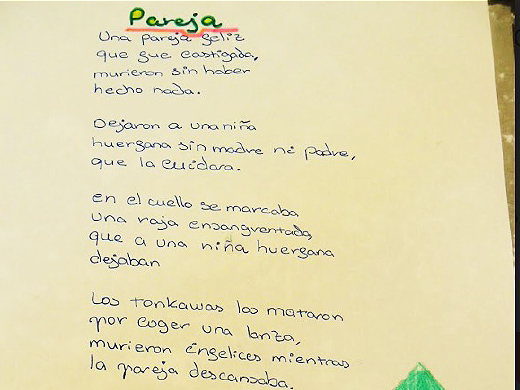 Pareja
Una pareja feliz
que fue castigada,
murieron sin haber
hecho nada.
Dejaron a una niña
huergana sin madre ni padre,
que la cuidara.
en el cuello se marcaba
una raja ensangrentada
que a una niña huergana
dejaban
Los tonkawas los mataron
por coger una lanza,
murieron engelices mientras
la pareja descansaba.